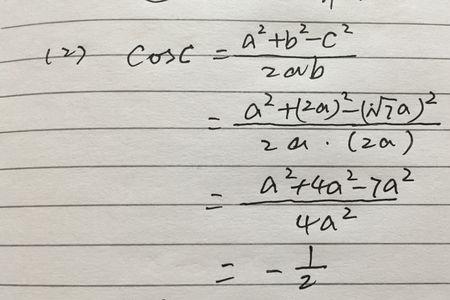 (2) cosC = (a²+b²-c²)/(2ab)
= (a²+(2a)²-(√7a)²)/(2a·(2a))
= (a²+4a²-7a²)/(4a²)
= -1/2